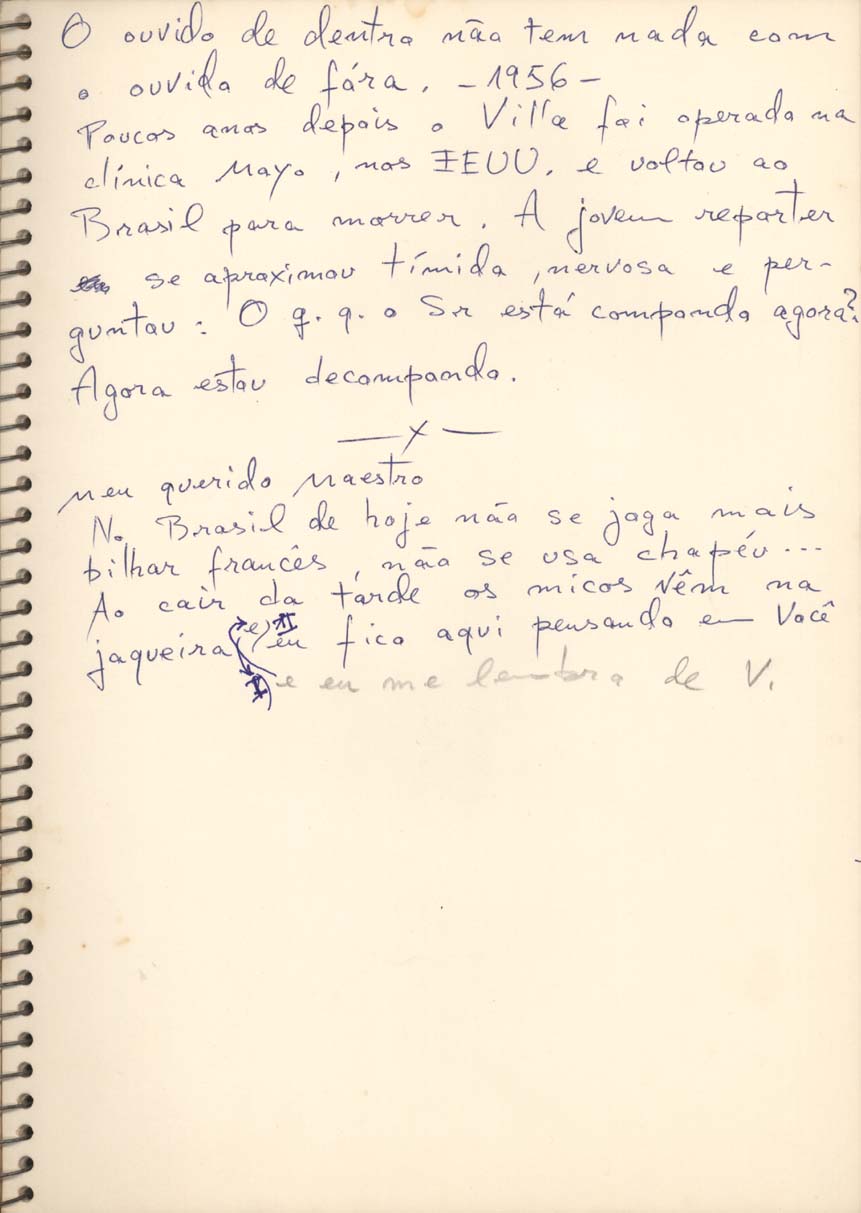 O ouvido de dentro não tem nada com
o ouvido de fóra. - 1956 -
Poucos anos depois o Villa foi operado na
clínica Mayo, nos EEUU. e voltou ao
Brasil para morrer. A jovem reporter
se aproximou tímida, nervosa e per-
guntou: O q. q. o Sr está compondo agora?
Agora estou decompondo.
—x—
Meu querido Maestro
No Brasil de hoje não se joga mais
bilhar francês, não se usa chapéu...
Ao cair da tarde os micos vêm na
jaqueira (e) eu fico aqui pensando em Você
e eu me lembro de V.